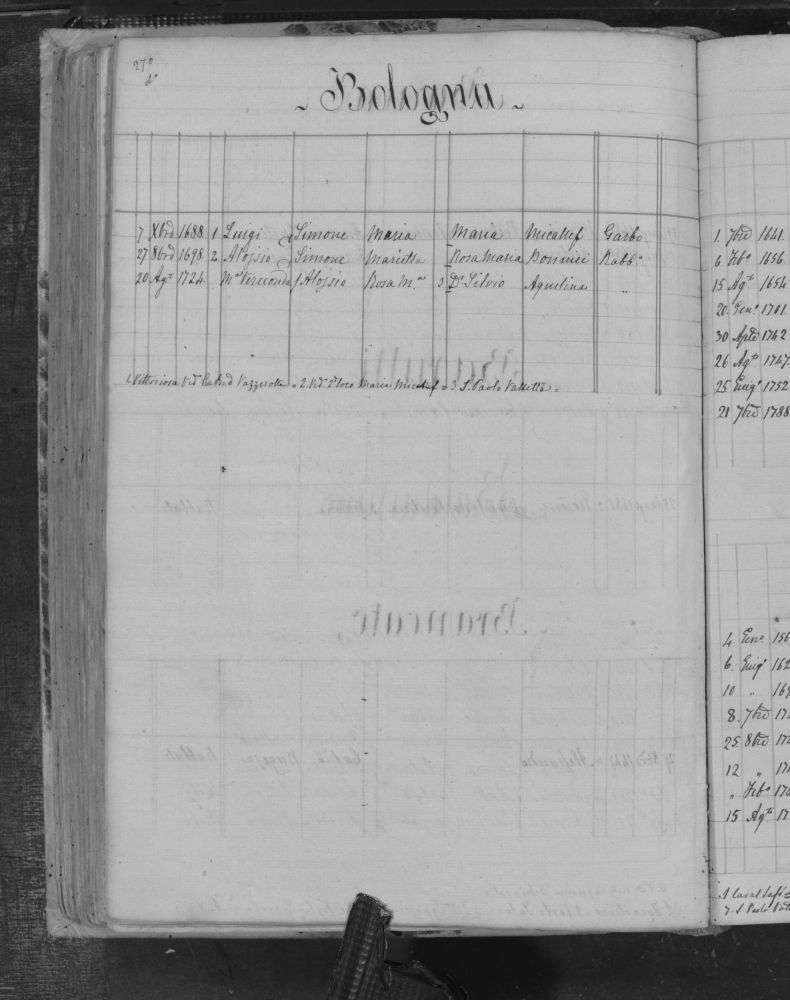 27º
- Bologna -
7 Xbre 1688 1 Luigi Simone Maria Maria Micallef Garbo
27 8bre 1698 2 Aloisio Simone Marietta Rosa Maria Bonnici Rabbº
20 Agto 1724 Mª Vereconda Aloisio Rosa M.ª 3 Dr Silvio Aquilina "
1. Vittoriosa Vid Vazzerotta = 2. Vid dº loco Maria Micallef = 3 S. Paolo Valletta =
1. 7bre 1641.
6 Febº 1656
15 Agto 1654
20. Genº 1701
30 Aple 1742
26 Agto 1747
25 Giugº 1752
21 7bre 1788
4 Genº 156
6. Giugº 162
10 "
8. 7bre
25 8bre
12 "
" Febº
15 Agto
7. S. Paolo